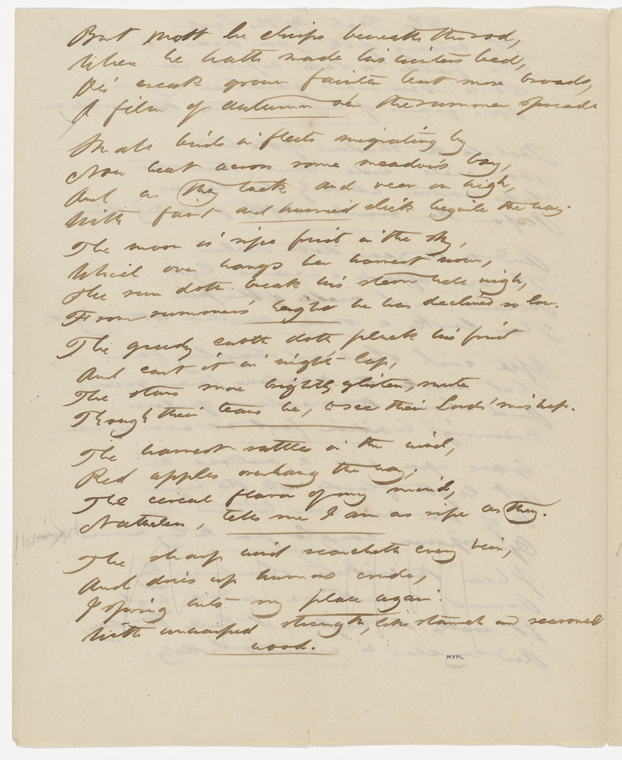 But most he chirps beneath the sod,
When he hath made his winters bed,
His creak grown fainter but more broad,
A film of autumn o'er the summer spread
Small birds in fleets migrating by
Now beat across some meadow's bay,
And as they tack and veer on high,
With faint and hurried click beguile the way.
The moon is ripe fruit in the sky,
Which over hangs her harvest now,
The sun doth break his stem well nigh,
From summers' height he has declined so low.
The greedy earth doth pluck his fruit
And cast it in night's lap,
The stars more brightly glisten, mute
Though their tears be, to see their Lords' mishap.
The harvest rattles in the wind,
Red apples overhang the way,
The cereal flavor of my mind,
Natheless, tells me I am as ripe as they.
The sharp wind searcheth every vein,
And dries up humors crude,
I spring into my place again
With unwarped strength, like stanch and seasoned
wood.
NYPL